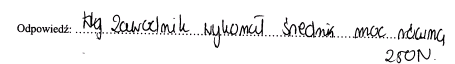 Odpowiedź: Ktg Zawodnik wykonał średnią moc równą
250N.